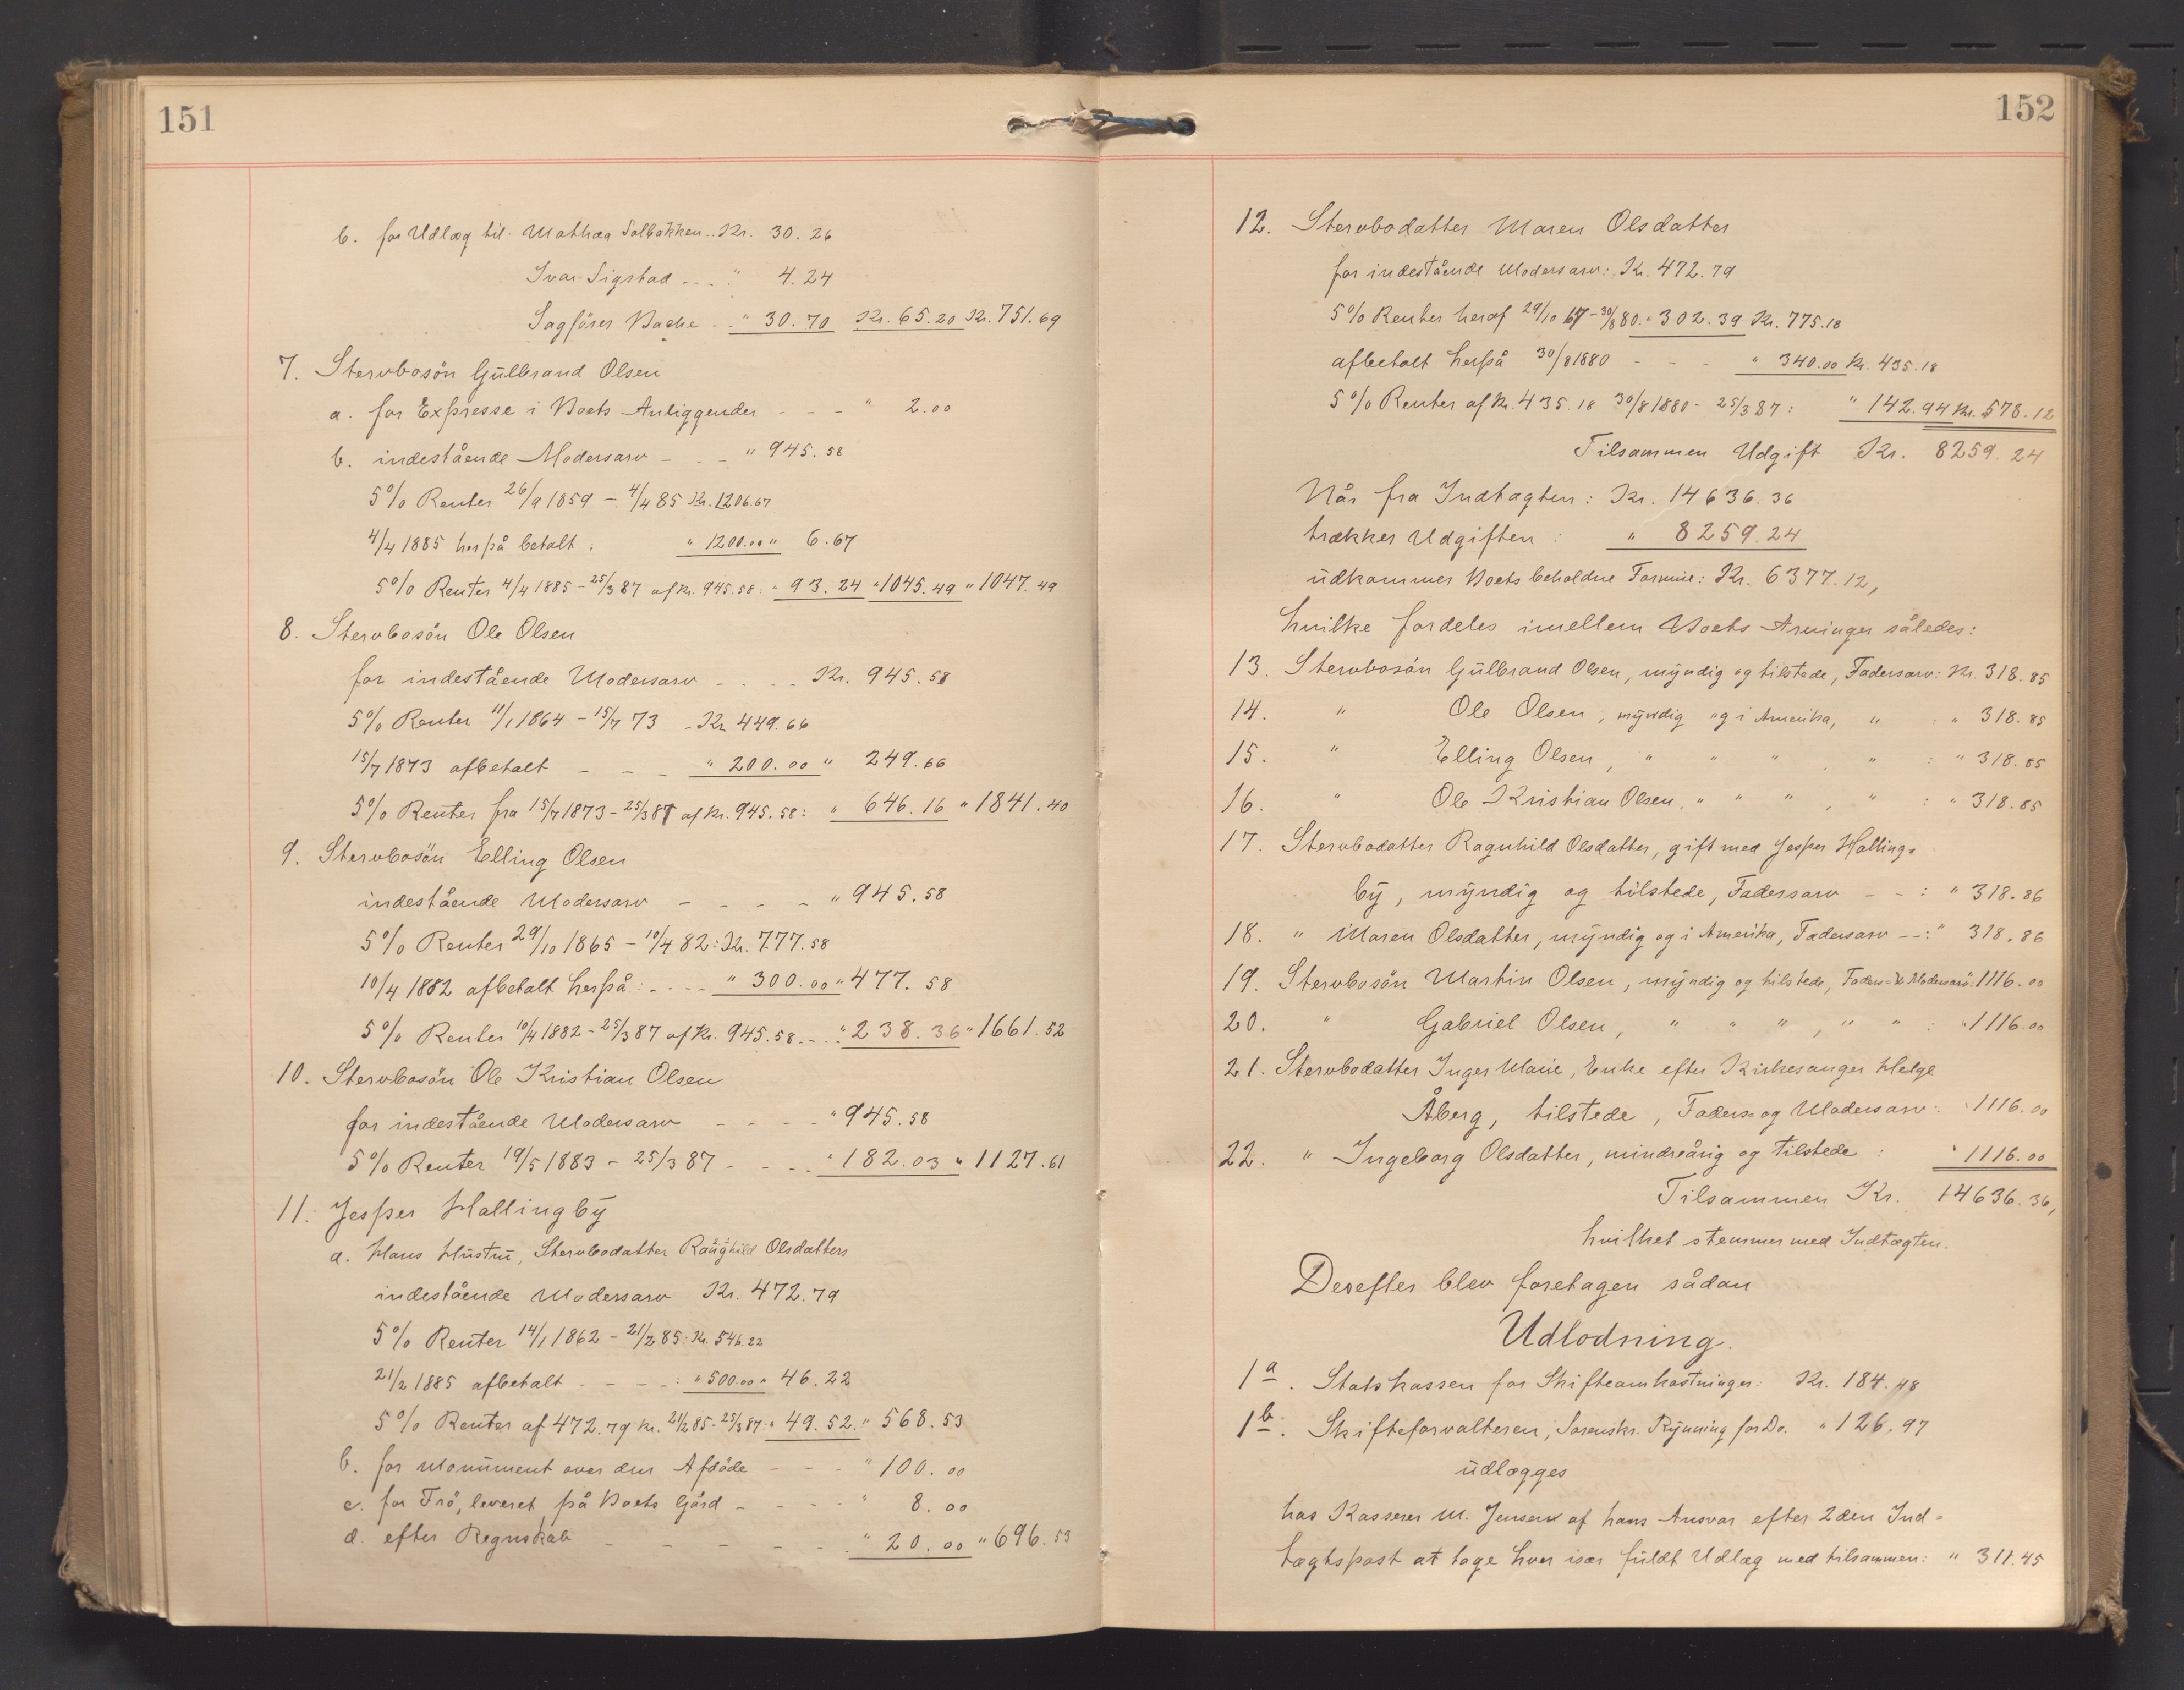 151
b. for Udlæg til: Mathea Solbakken.. Kr. 30.26
Ivar Sigstad ... " 4.24
Sagfører Bache .. " 30.70 Kr. 65.20 Kr. 751.69
7. Stervbosön Gulbrand Olsen
a. for Expresse i Boets Anliggender - - - " 2.00
b. indestående Modersarv - - - " 945.58
5% Renter 26/9 1859 - 4/4 85 Kr. 1206.67
4/4 1885 herpå betalt : " 1200.00 " 6.67
5% Renter 4/4 1885 - 25/3 87 af Kr. 945.58: " 93.24 " 1045.49 " 1047.49
8. Stervbosön Ole Olsen
for indestående Modersarv - . . - Kr. 945.58
5% Renter 11/1 1864 - 15/7 73 - Kr. 449.66
15/7 1873 afbetalt - - - " 200.00 " 249.66
5% Renter fra 15/7 1873 - 25/3 87 af Kr. 945.58: " 646.16 " 1841.40
9. Stervbosön Elling Olsen
indestående Modersarv - - - - " 945.58
5% Renter 29/10 1865 - 10/4 82: Kr. 777.58
10/4 1882 afbetalt herpå: - - - - " 300.00 " 477.58
5% Renter 10/4 1882 - 25/3 87 af Kr. 945.58. - . : " 238.36 " 1661.52
10. Stervbosön Ole Kristian Olsen
for indestående Modersarv - - - - " 945.58
5% Renter 19/5 1883 - 25/3 87 - - - - " 182.03 " 1127.61
11. Jesper Hallingby
a. Hans Hustru, Stervbodatter Ragnhild Olsdatters
indestående Modersarv Kr. 472.79
5% Renter 14/1 1862 - 21/2 85: Kr. 546.22
21/2 1885 afbetalt - - - - : " 500.00 " 46.22
5% Renter af 472.79 Kr. 21/2 85 - 25/3 87: " 49.52. " 568.53
b. for Monument over den Afdöde - - - " 100.00
c. for Frö, leveret på Boets Gård - - - - " 8.00
d. efter Regnskab - - - - - - " 20.00 " 696.53
152
12. Stervbodatter Maren Olsdatter
for indestående Modersarv: Kr. 472.79
5% Renter heraf 29/10 67 - 30/8 80. " 302.39 Kr. 775.18
afbetalt herpå 30/8 1880 - - - " 340.00 Kr. 435.18
5% Renter af Kr. 435.18 30/8 1880 - 25/3 87: " 142.94 Kr. 578.12
Tilsammen Udgift Kr. 8259.24
Når fra Indtægten: Kr. 14636.36
trækkes Udgiften : " 8259.24
udkommer Boets beholdne Formue: Kr. 6377.12,
hvilke fordeles imellem Boets Arvinger således:
13. Stervbosön Gulbrand Olsen, myndig og tilstede, Fadersarv: Kr. 318.85
14. " Ole Olsen, myndig og i Amerika, " : " 318.85
15. " Elling Olsen, " " " , " : " 318.85
16. " Ole Kristian Olsen, " " " , " : " 318.85
17. Stervbodatter Ragnhild Olsdatter, gift med Jesper Halling-
by, myndig og tilstede, Fadersarv - - : " 318.86
18. " Maren Olsdatter, myndig og i Amerika, Fadersarv - - : " 318.86
19. Stervbosön Martin Olsen, myndig og tilstede, Faders- & Modersarv: 1116.00
20. " Gabriel Olsen, " " " , " " : " 1116.00
21. Stervbodatter Inger Marie, Enke efter Kirkesanger Helge
Åberg, tilstede, Faders- og Modersarv: " 1116.00
22. " Ingeborg Olsdatter, mindreårig og tilstede : " 1116.00
Tilsammen Kr. 14636.36,
hvilket stemmer med Indtægten.
Derefter blev foretagen sådan
Udlodning.
1a. Statskassen for Skifteomkostninger: Kr. 184.48
1b. Skifteforvalteren, Sorenskr. Rynning for Do. " 126.97
udlægges
hos Kasserer M. Jensen af hans Ansvar efter 2den Ind-
tægtspost at tage hver især fuldt Udlæg med tilsammen: " 311.45